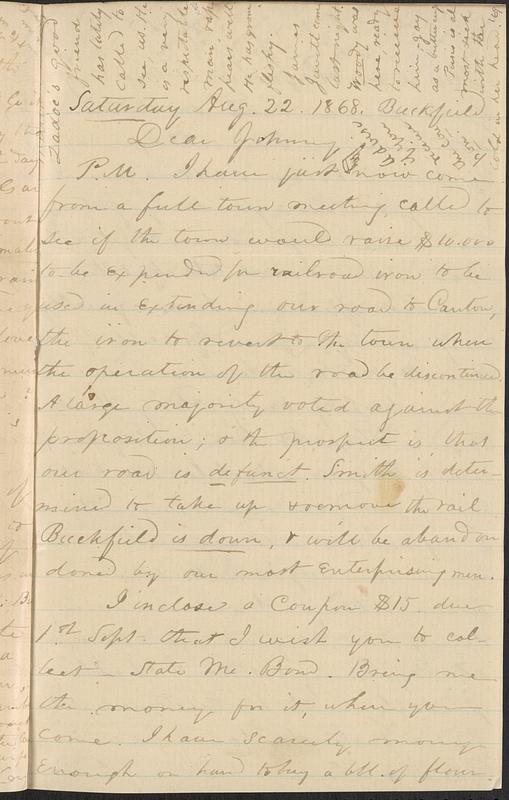 Saturday Aug. 22. 1868. Buckfield
Dear Johnny
P.M. I have just now come
from a full town meeting, called to
see if the town would raise $10.000
to be expended for railroad iron to be
used in extending our road to Canton,
the iron to revert to the town when
the operation of the road be discontinued.
A large majority voted against the
proposition; & the prospect is that
our road is defunct. Smith is deter-
mined to take up & remove the rail
Buckfield is down, & will be abandon
doned by our most enterprising men.
I inclose a Coupon $15 due
1st Sept. that I wish you to col-
lect – State Me. Bond. Bring me
the money for it, when you
come. I have scarcely money
enough on hand to buy a bbl. of flour.
Zadoc's good
friend
has lately
called to
see us. He
is a very
respectable
man
fleshy.
James
last night.
Woody was
here ready
to receive
him day